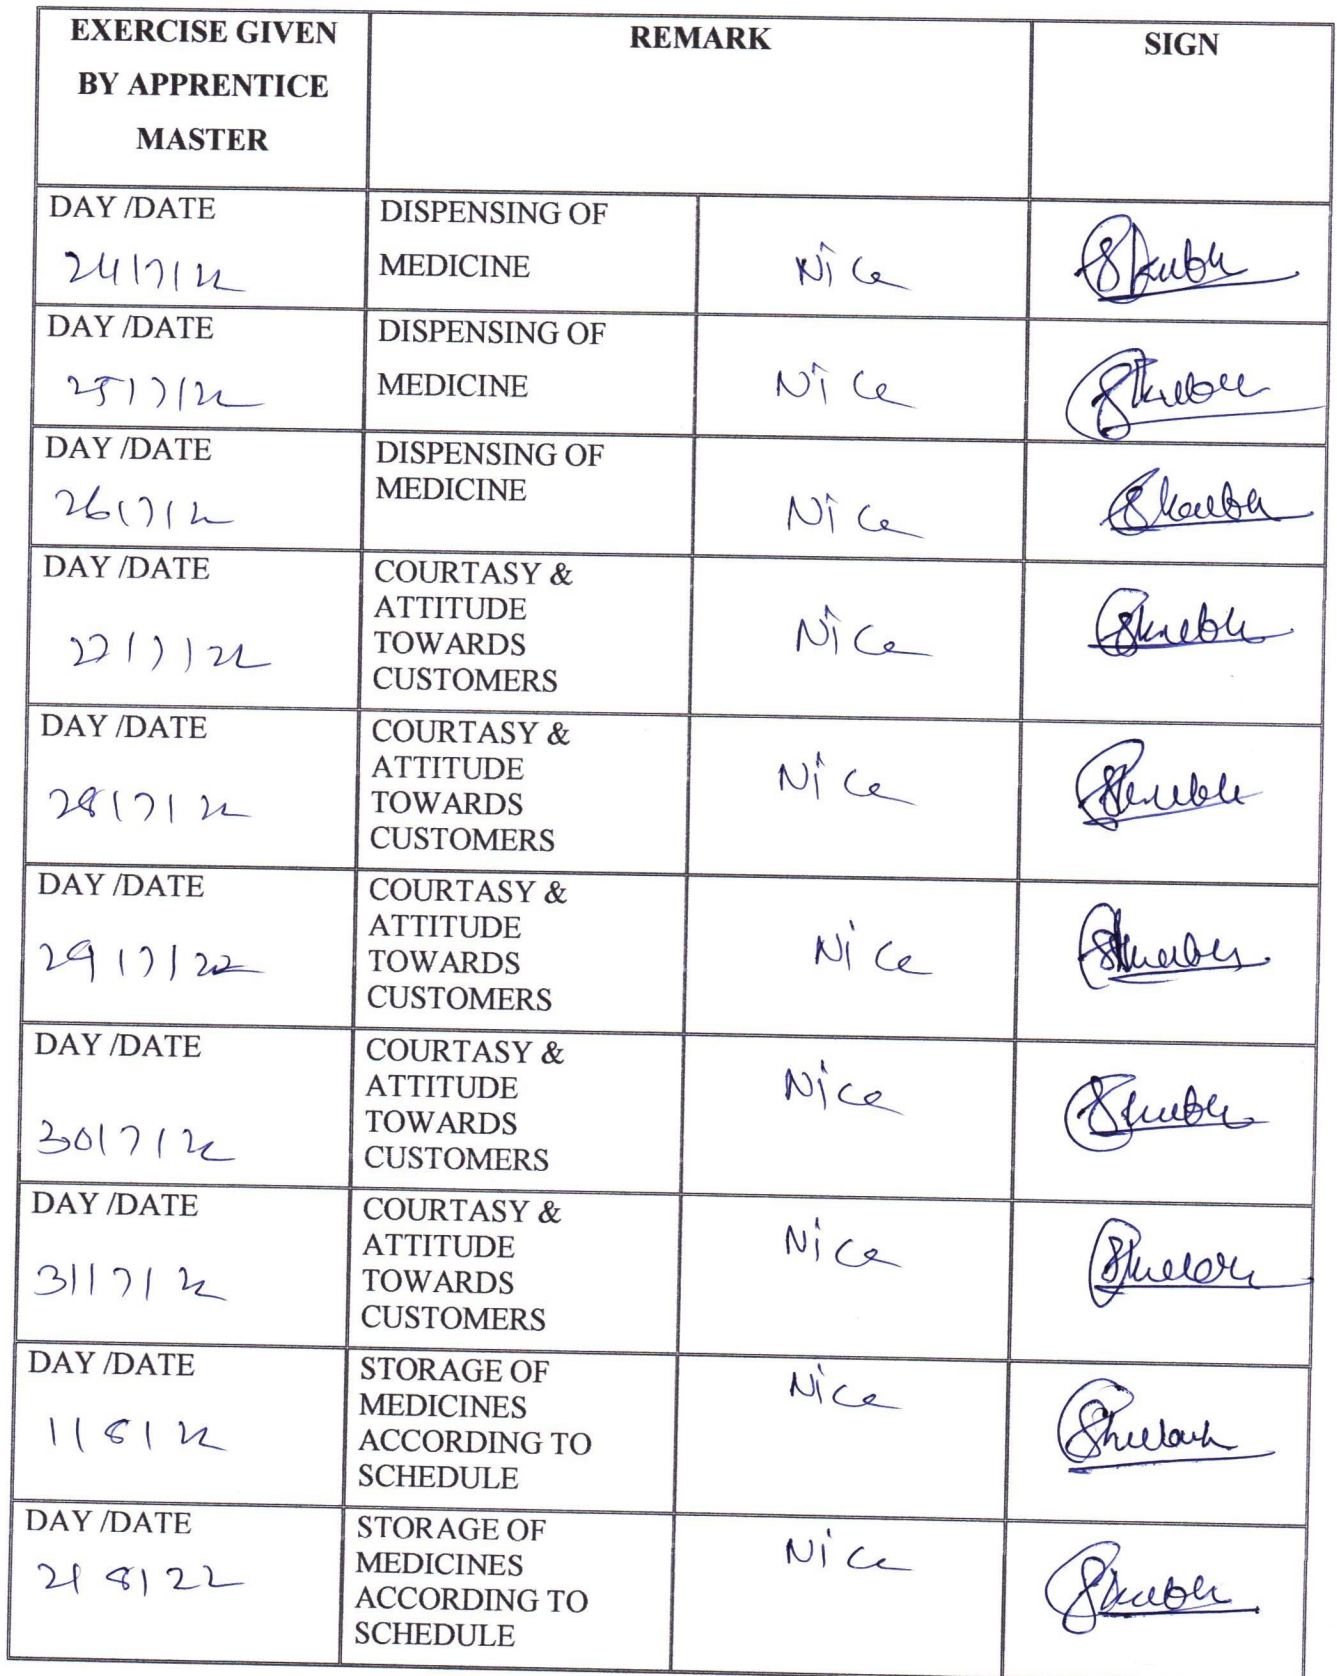 EXERCISE GIVEN
BY APPRENTICE
MASTER
REMARK
SIGN
DAY /DATE
24/7/22
DISPENSING OF
MEDICINE
Nice
DAY /DATE
25/7/22
DISPENSING OF
MEDICINE
Nice
DAY /DATE
26/7/22
DISPENSING OF
MEDICINE
Nice
DAY /DATE
27/7/22
COURTASY &
ATTITUDE
TOWARDS
CUSTOMERS
Nice
DAY /DATE
28/7/22
COURTASY &
ATTITUDE
TOWARDS
CUSTOMERS
Nice
DAY /DATE
29/7/22
COURTASY &
ATTITUDE
TOWARDS
CUSTOMERS
Nice
DAY /DATE
30/7/22
COURTASY &
ATTITUDE
TOWARDS
CUSTOMERS
Nice
DAY /DATE
31/7/22
COURTASY &
ATTITUDE
TOWARDS
CUSTOMERS
Nice
DAY /DATE
1/8/22
STORAGE OF
MEDICINES
ACCORDING TO
SCHEDULE
Nice
DAY /DATE
2/8/22
STORAGE OF
MEDICINES
ACCORDING TO
SCHEDULE
Nice